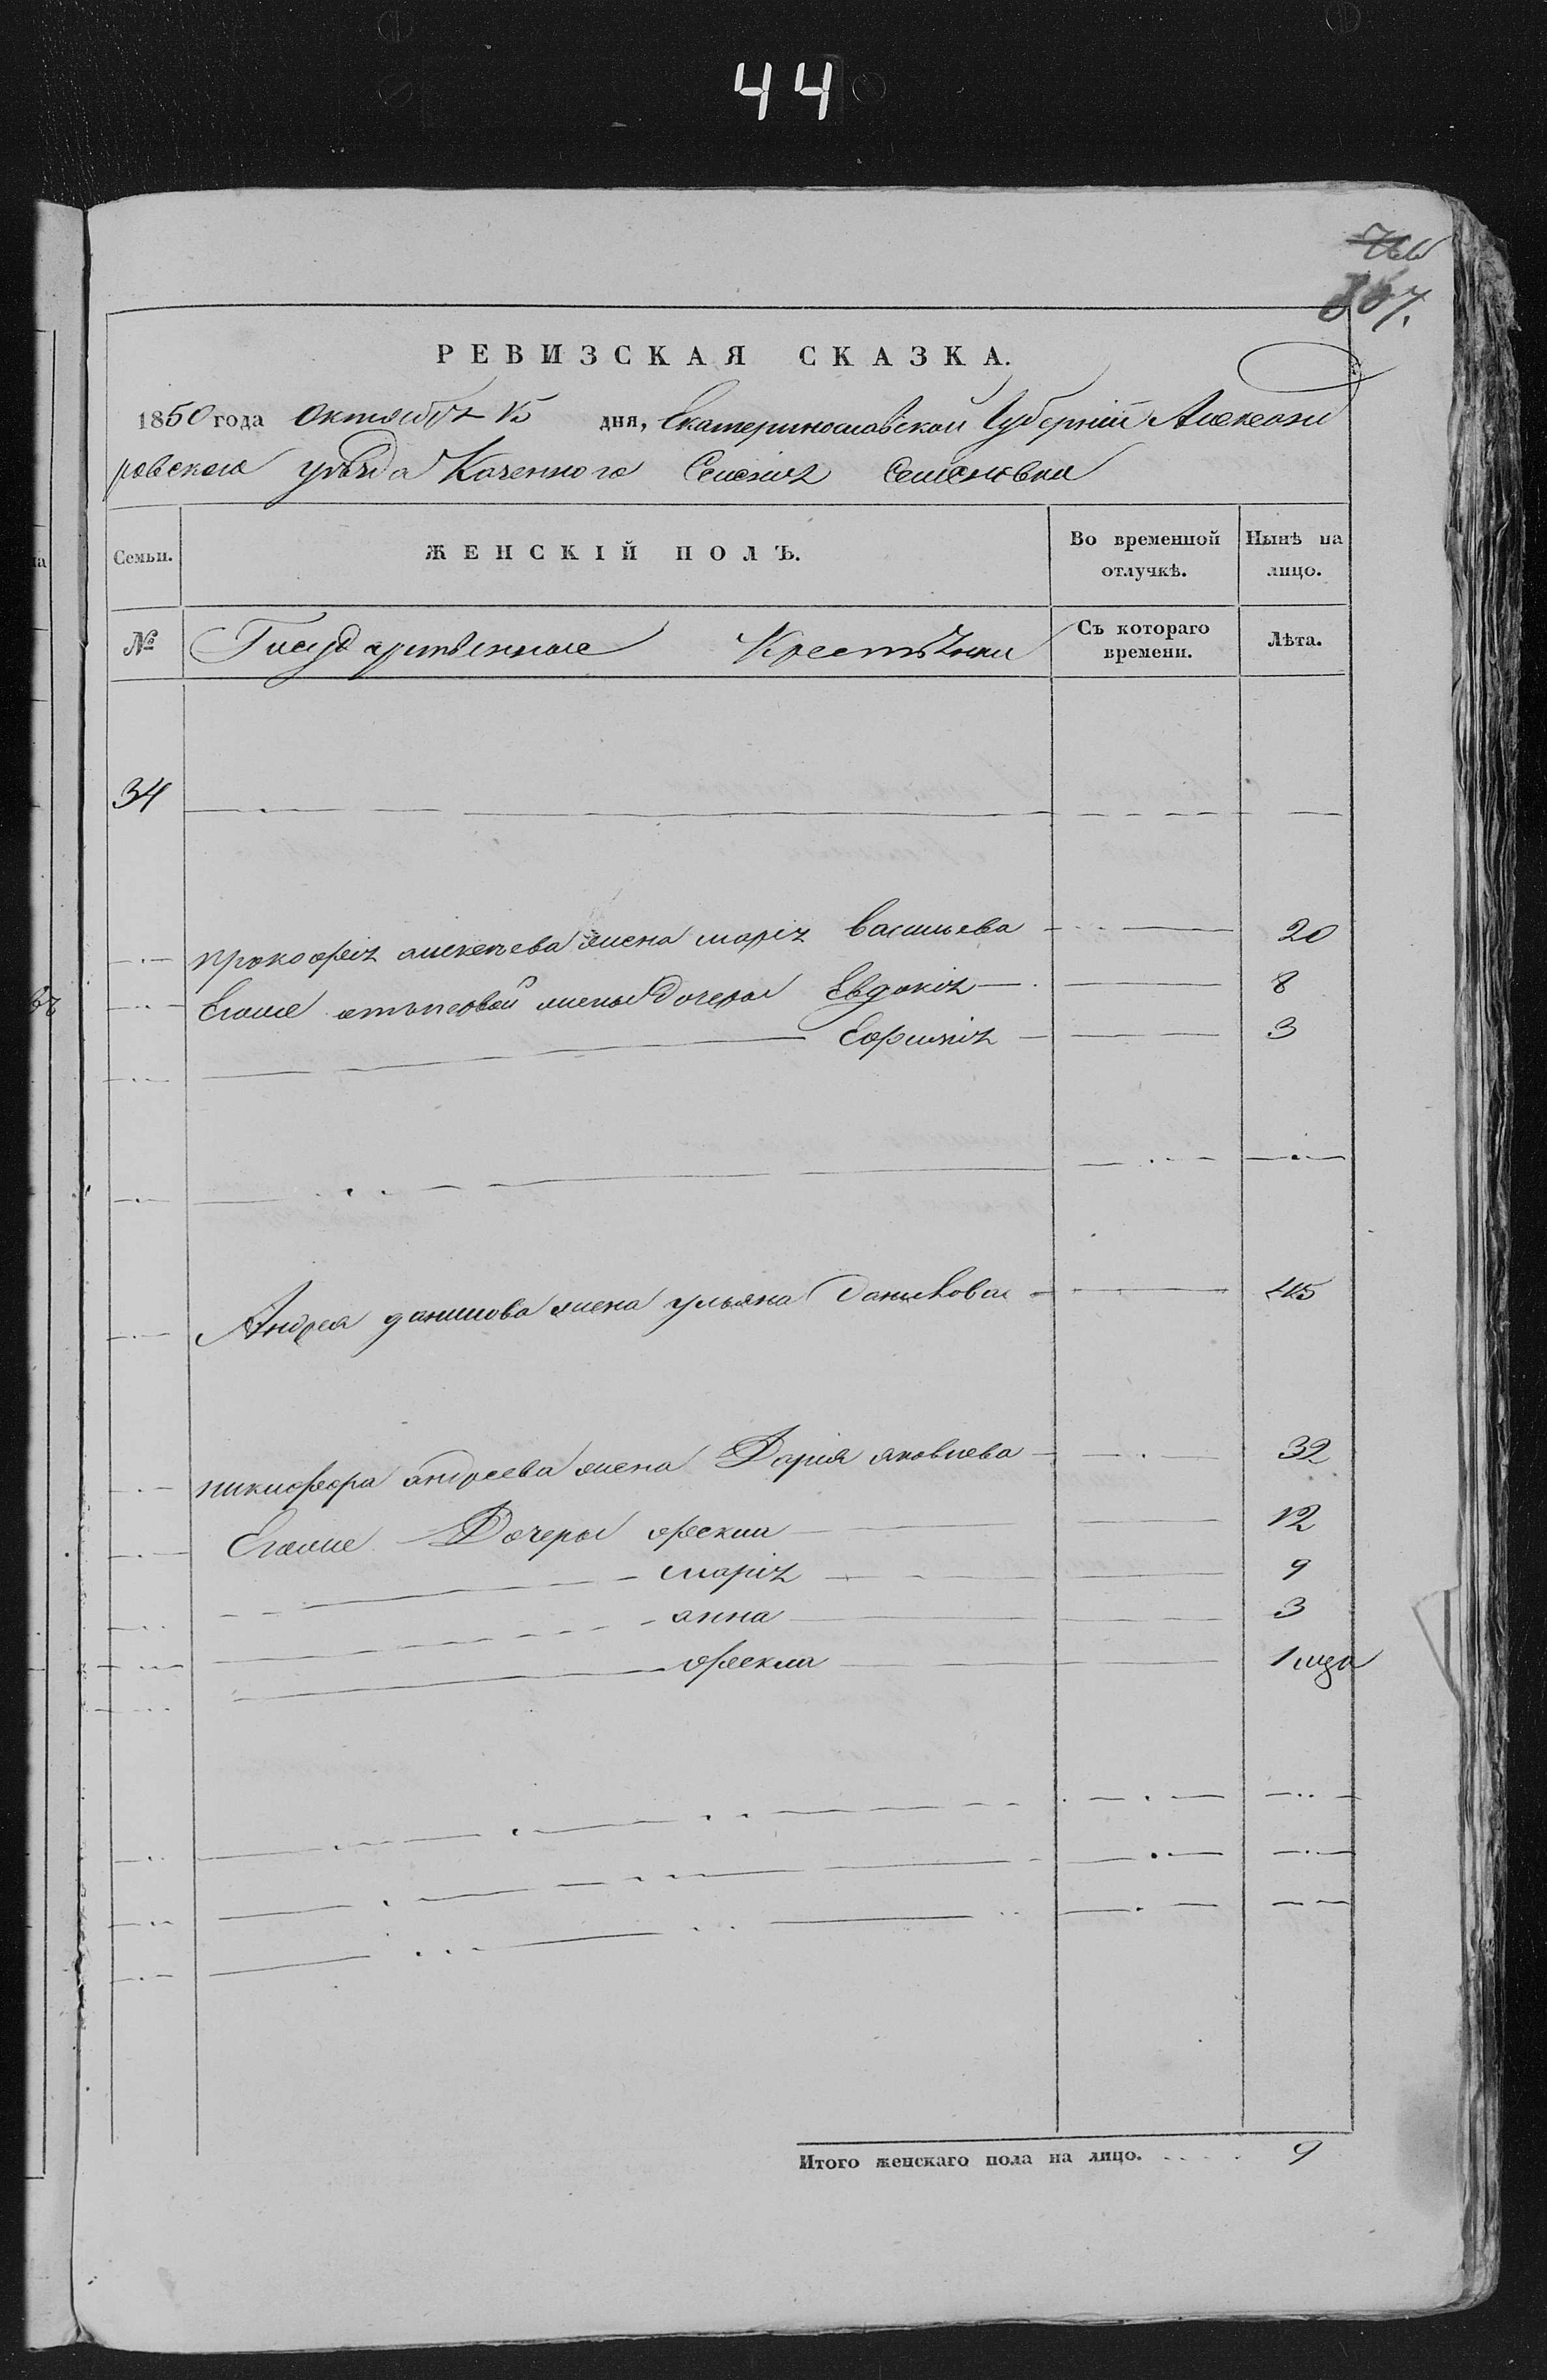 44
766
867.
РЕВИЗСКАЯ СКАЗКА.
1850 года Октября 15 дня, Екатеринославской Губерніи Александ
ровского уѣзда Казенного Селенія Семеновки
Семьи. ЖЕНСКІЙ ПОЛЪ. Во временной отлучкѣ. Нынѣ на лицо.
№ Государственные Крестьянки Съ котораго времени. Лѣта.
34
прокофія алексѣева жена марія васильева 20
Егоже отъ первой жены Дочеры Евдокія 8
Ефимія 3
Андрея данилова жена ульяна Данилова 45
никифора андреева жена Дарія яковлева 32
Егоже Дочеры фекла 12
марія 9
анна 3
фекла 1 мца
Итого женскаго пола на лицо. 9